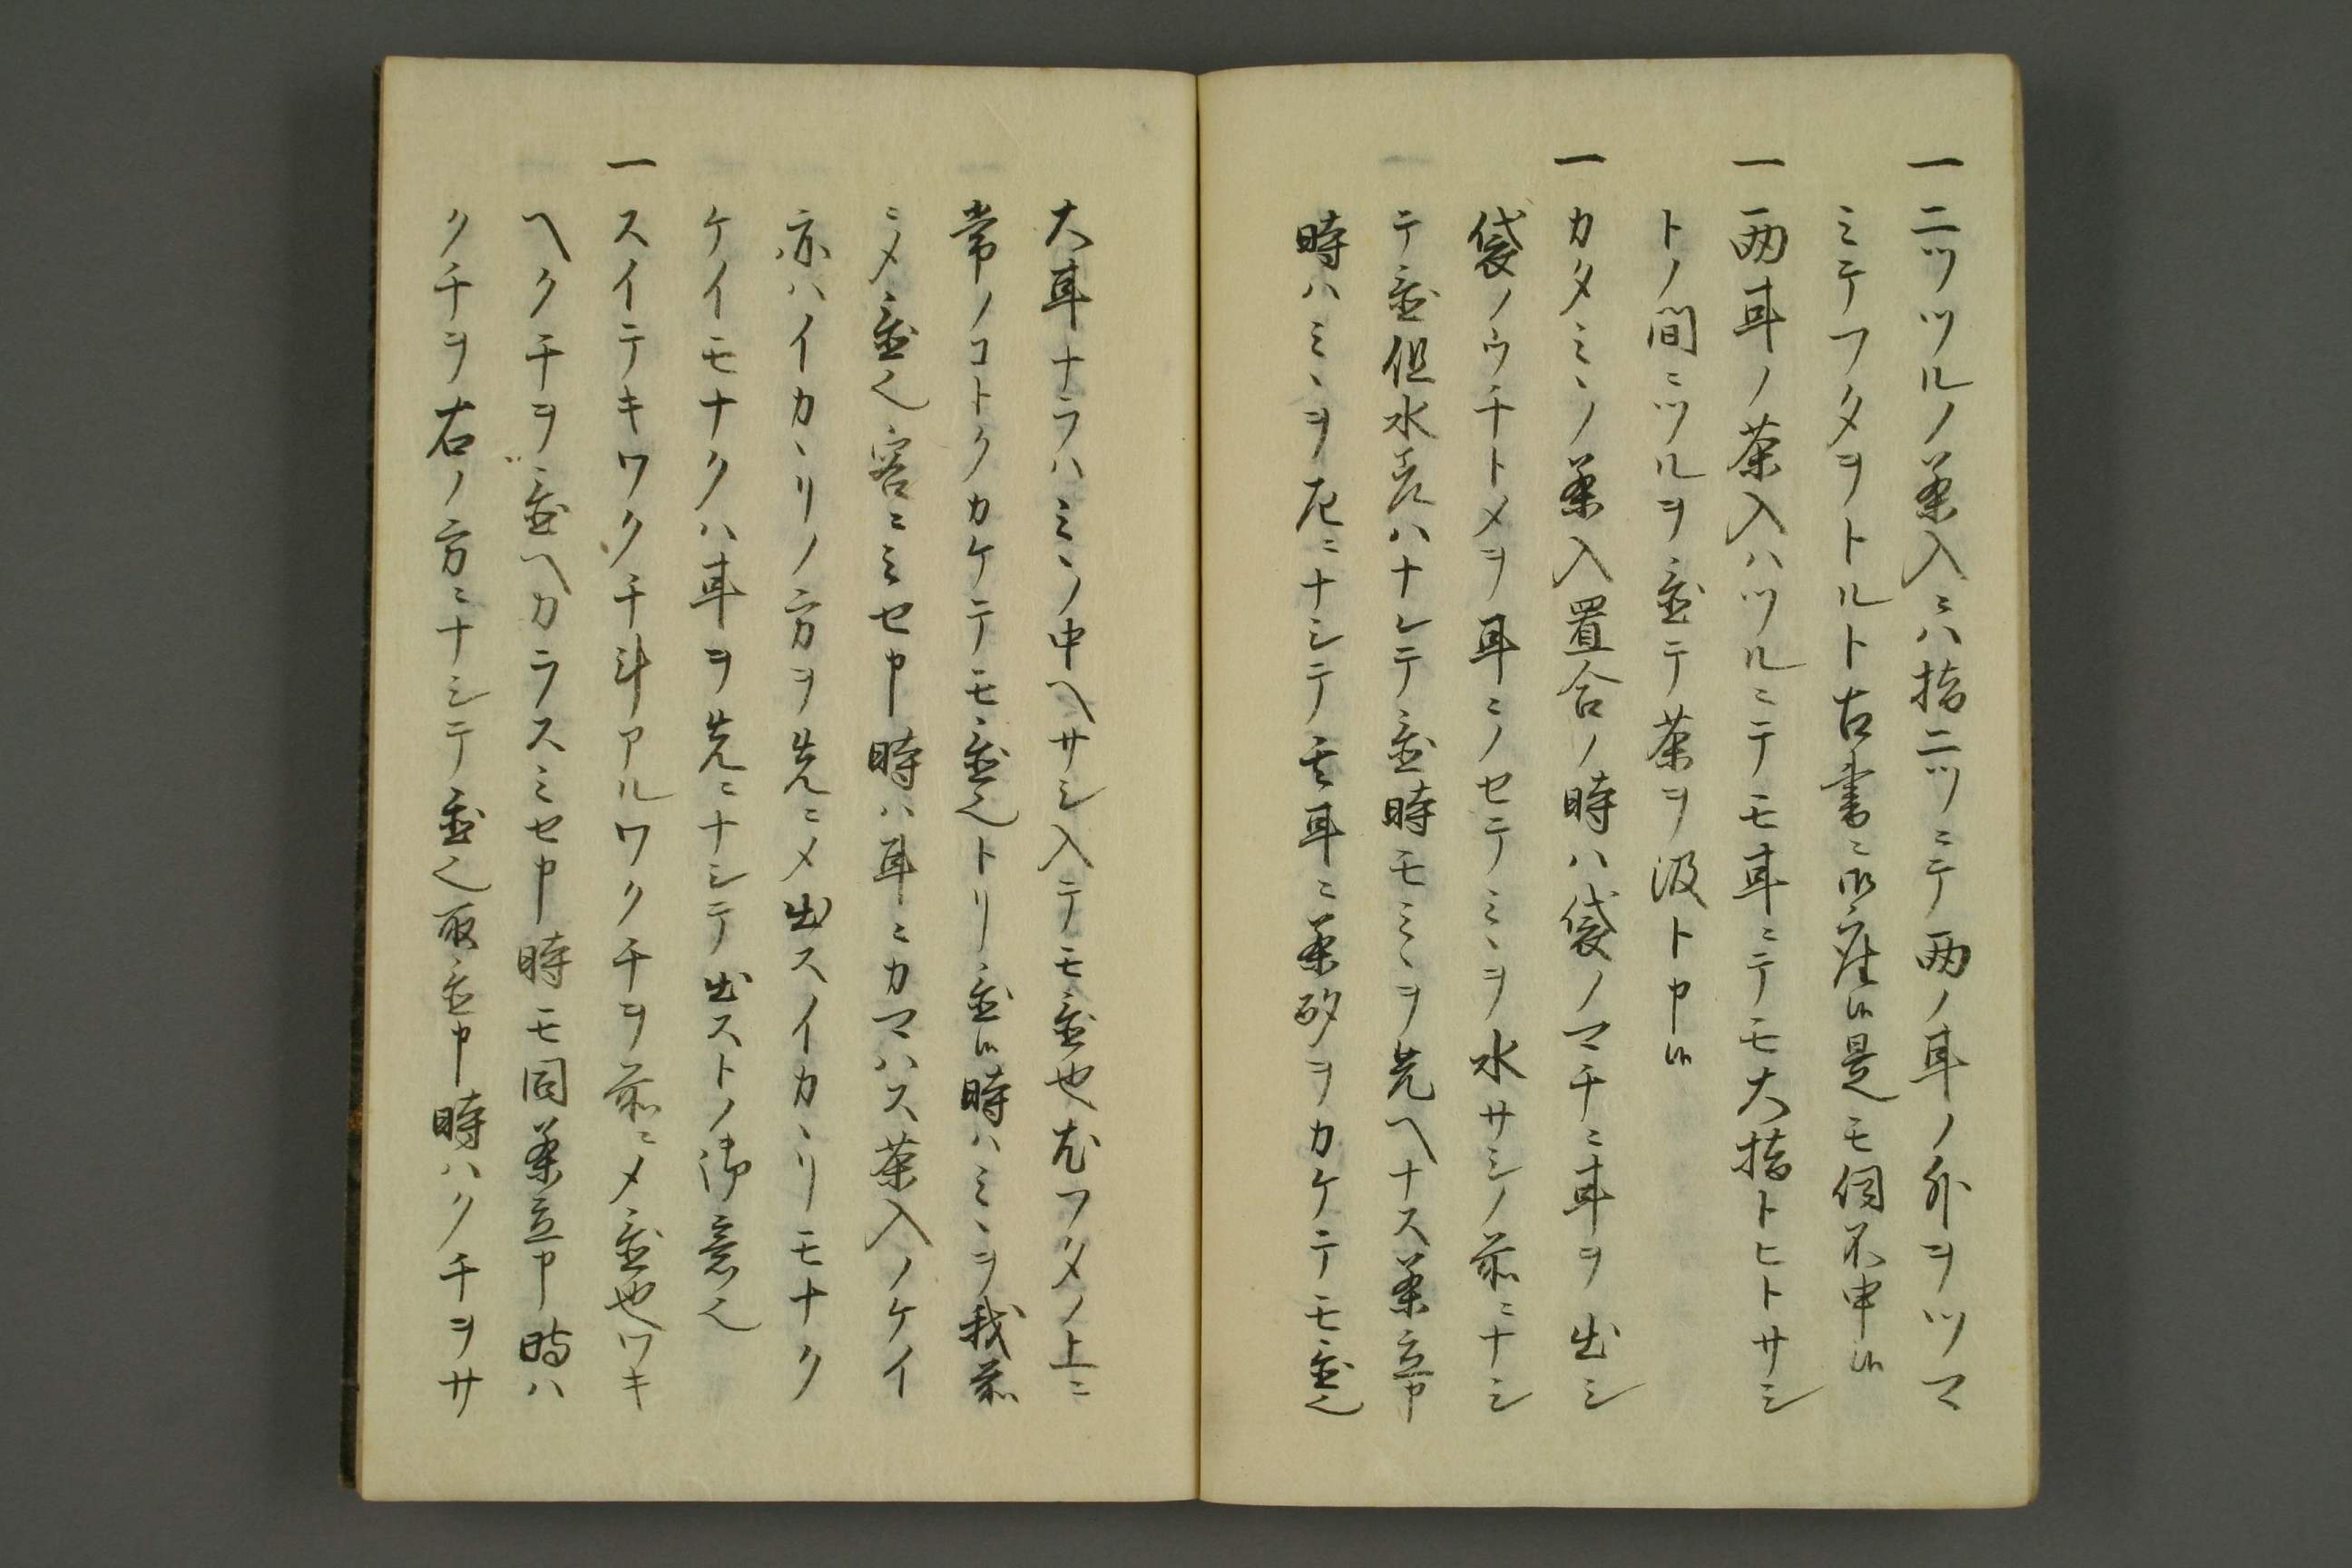 一 ニツツルノ茶入ニハ指二ツニテ両ノ耳ノ外ヲツマ
ミテフタヲトルト古書ニ御座候是モ伺不申候
一 両耳ノ茶入ハツルニテモ耳ニテモ大指トヒトサシ
トノ間ニツルヲ置テ茶ヲ汲ト申候
一 カタミヽノ茶入置合ノ時ハ袋ノマチニ耳ヲ出シ
袋ノウチトメヲ耳ニノセテミヽヲ水サシノ前ニナシ
テ置但水ハナレテ置時モミヽヲ先ヘナス茶立申
時ハミヽヲ左ニナシテ耳ニ茶杓ヲカケテモ置也
大耳ナラハミヽノ中ヘサシ入テモ置也尤フタノ上ニ
常ノコトクカケテモ置也トリ置候時ハミヽヲ我前
ニメ置也客ニミセ申時ハ耳ニカマハス茶入ノケイ
亦ハイカヽリノ方ヲ先ニメ出スイカヽリモナク
ケイモナクハ耳ヲ先ニナシテ出ストノ御意也
一 スイテキワクチ斗アルワクチヲ前ニメ置也ワキ
ヘクチヲ置ヘカラスミセ申時モ同茶立申時ハ
クチヲ右ノ方ニナシテ置也取置申時ハクチヲサ